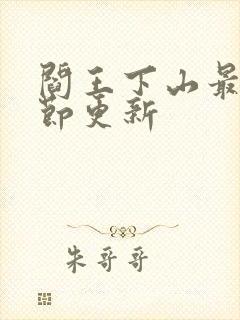 阎王下山最
节更新
朱哥哥